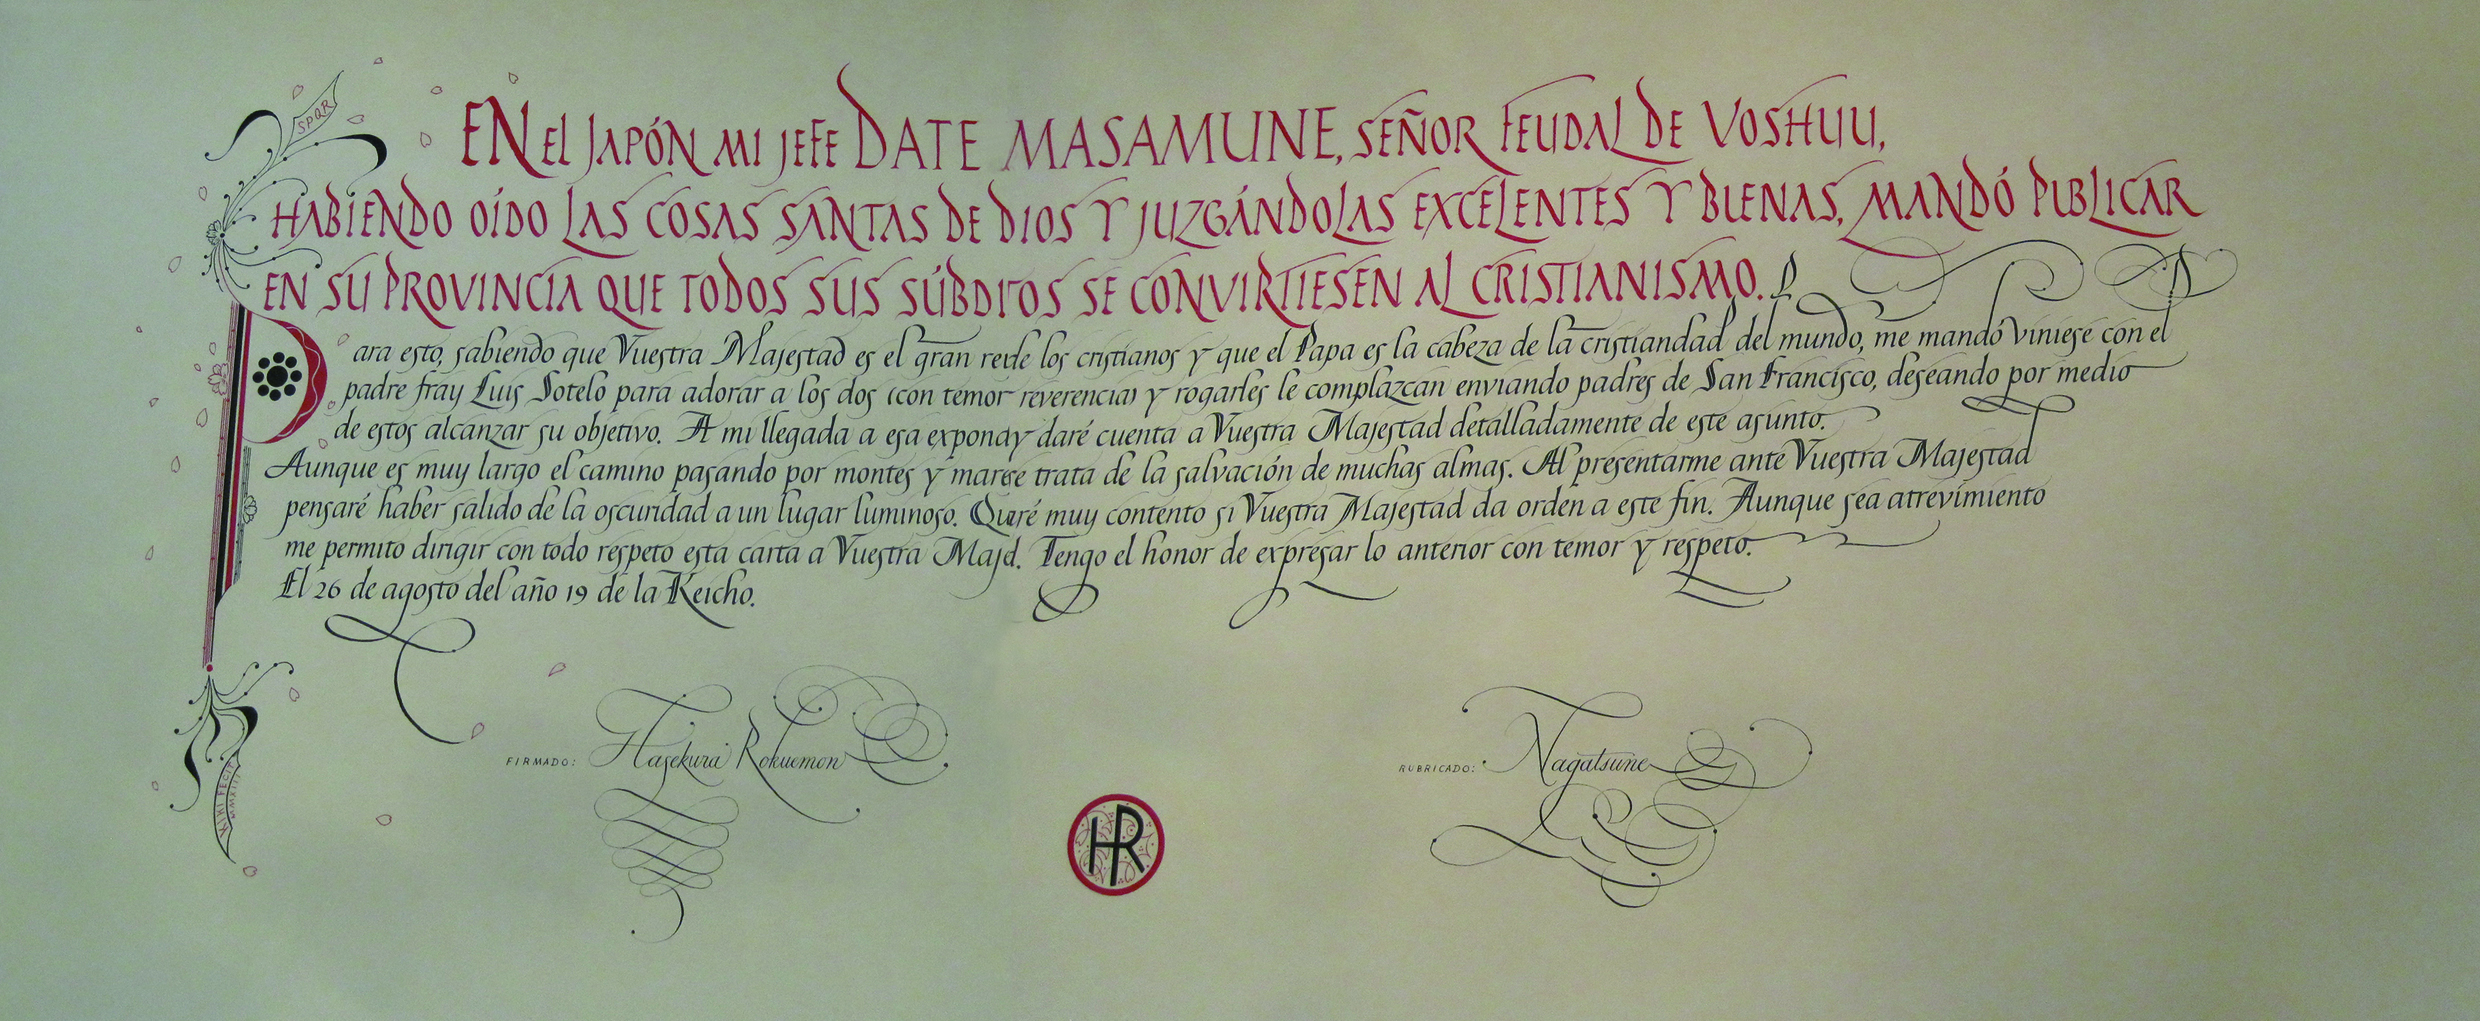 SPQR
EN El JAPÓN MI JEFE DATE MASAMUNE, SEÑOR FEUDAL DE VOSHUU,
HABIENDO OÍDO LAS COSAS SANTAS DE DIOS Y JUZGÁNDOLAS EXCELENTES Y BUENAS, MANDÓ PUBLICAR
EN SU PROVINCIA QUE TODOS SUS SÚBDITOS SE CONVIRTIESEN AL CRISTIANISMO.
Para esto, sabiendo que Vuestra Majestad es el gran rede los cristianos y que el Papa es la cabeza de la cristiandad del mundo, me mandó viniese con el
padre fray Luis Sotelo para adorar a los dos (con temor reverencia) y rogarles le complazcan enviando padres de San Francisco, deseando por medio
de estos alcanzar su objetivo. A mi llegada a esa y daré cuenta a Vuestra Majestad detalladamente de este asunto.
Aunque es muy largo el camino pasando por montes y trata de la salvación de muchas almas. Al presentarme ante Vuestra Majestad
pensaré haber salido de la oscuridad a un lugar luminoso. muy contento si Vuestra Majestad da orden a este fin. Aunque sea atrevimiento
me permito dirigir con todo respeto esta carta a Vuestra Majd. Tengo el honor de expresar lo anterior con temor y respeto.
El 26 de agosto del año 19 de la Keicho.
FIRMADO: Hasekura Rokuemon
RUBRICADO: Nagatsune
HR